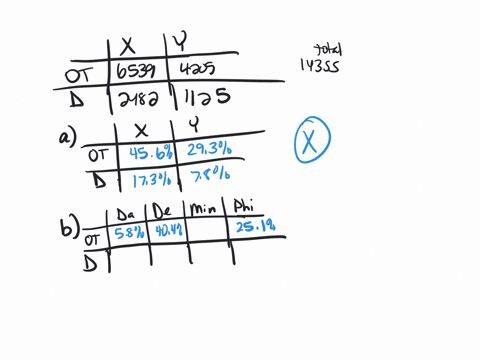 X Y
total
OT 6539 4205 14355
D 2482 1125
a) X Y
OT 45.6% 29.3%
X
D 17.3% 7.8%
b) Da De Min Phi
OT 5.8% 40.4% 25.1%
D